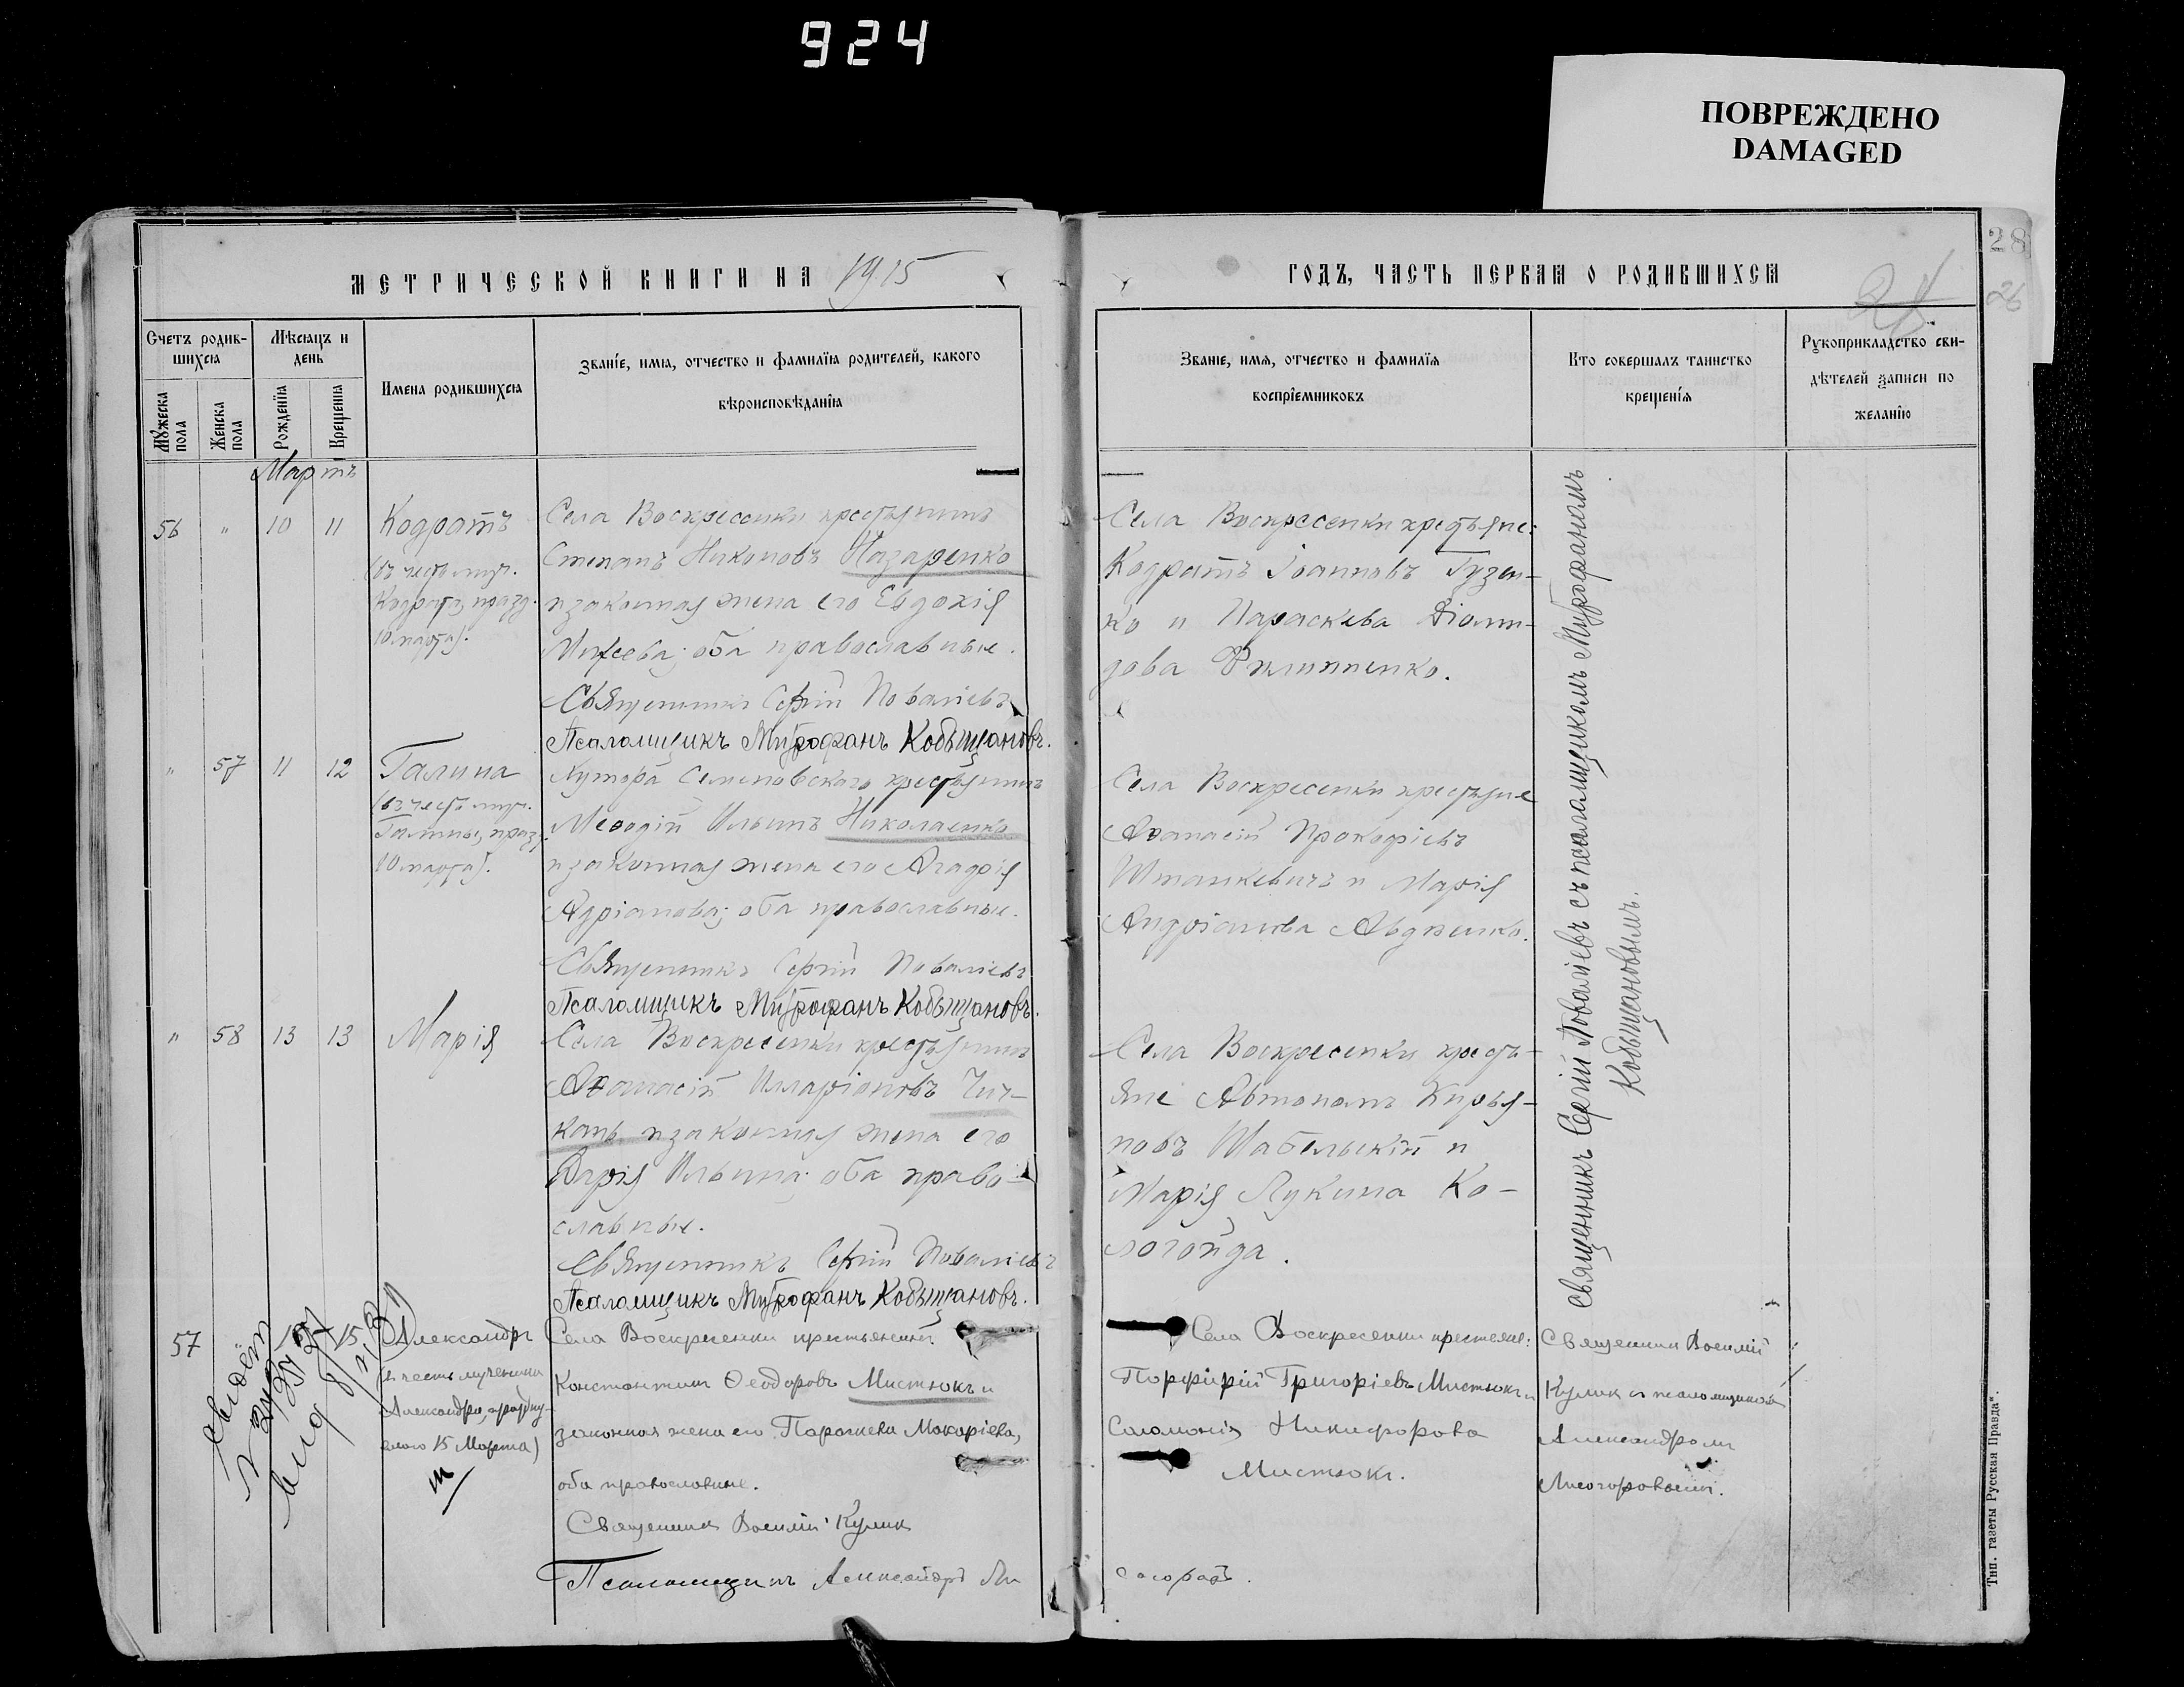 924
ПОВРЕЖДЕНО
DAMAGED
28
26
МЕТРИЧЕСКОЙ КНИГИ НА 1915
ГОДЪ, ЧАСТЬ ПЕРВАЯ О РОДИВШИХСЯ
Счетъ родив-
шихся
Мѣсяцъ и
день
Мужеска
пола
Женска
пола
Рожденїя
Крещенїя
Имена родившихся
Званїе, имя, отчество и фамилїя родителей, какого
вѣроисповѣданїя
Званїе, имя, отчество и фамилїя
воспрїемниковъ
Кто совершалъ таинство
крещенїя
Рукоприкладство сви-
дѣтелей записи по
желанїю
Мартъ
56 " 10 11
Кодратъ
(въ честь муч.
Кодрата, празд.
10 марта).
Села Воскресенки крестьянинъ
Степанъ Никоновъ Назаренко
и законная жена его Евдокія
Михеева; оба православные.
Священникъ Сергій Поваліевъ
Псаломщикъ Митрофанъ Кобыщановъ.
Села Воскресенки крестьяне:
Кодратъ Іоанновъ Гузен-
ко и Параскева Діоми-
дова Филиппенко.
" 57 11 12
Галина
(въ честь муч.
Галины, празд.
10 марта).
Хутора Семеновскаго крестьянинъ
Меѳодій Ильинъ Николаенко
и законная жена его Агафія
Адріанова; оба православные.
Священникъ Сергій Поваліевъ
Псаломщикъ Митрофанъ Кобыщановъ.
Села Воскресенки крестьяне
Аѳанасій Прокофіевъ
Штанкевичъ и Марія
Андріанова Авдѣенко.
" 58 13 13
Марія
Села Воскресенки крестьянинъ
Аѳанасій Илларіоновъ Чич-
кань и законная жена его
Дарія Ильина; оба право-
славные.
Священникъ Сергій Поваліевъ
Псаломщикъ Митрофанъ Кобыщановъ.
Села Воскресенки кресть-
яне Автономъ Кирья-
новъ Шабельскій и
Марія Лукина Ко-
логойда.
Священникъ Сергій Поваліевъ съ псаломщикомъ Митрофаномъ
Кобыщановымъ.
57
15
Александръ
(въ честь мученика
Александра, праздну-
емаго 15 Марта)
Села Воскресенки крестьянинъ
Константинъ Ѳеодоровъ Мистюкъ и
законная жена его Параскева Макаріева,
оба православные.
Священникъ Василій Кулик
Псаломщикъ Александръ Ли
согоровъ.
Села Воскресенки крестьяне:
Порфирій Григоріевъ Мистюкъ и
Саломонія Никифорова
Мистюкъ.
Священник Василій
Кулик и псаломщикомъ
Александромъ
Лисогоровымъ.
Тип. газеты Русская Правда".